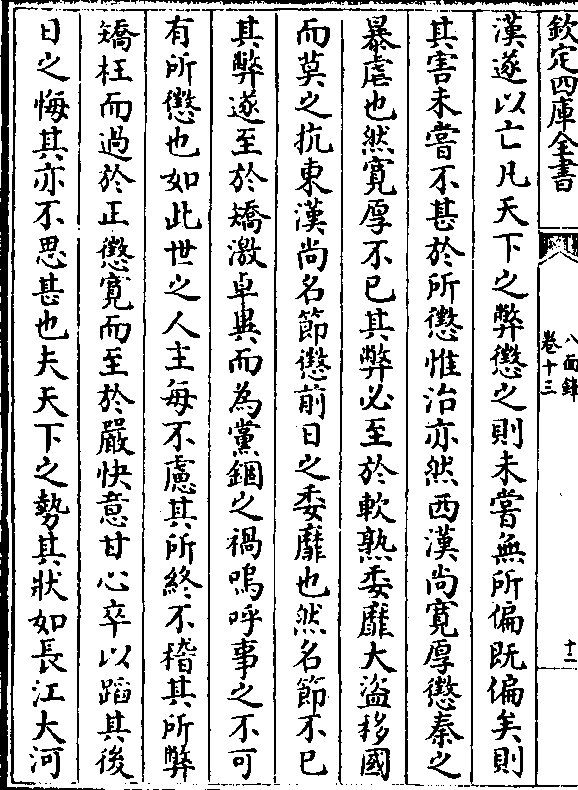 欽定四庫全書
八面鋒
卷十三
十二
漢遂以亡凡天下之弊懲之則未嘗無所偏既偏矣則
其害未嘗不甚於所懲惟治亦然西漢尚寛厚懲秦之
暴虐也然寛厚不已其弊必至於軟熟委靡大盜移國
而莫之抗東漢尚名節懲前日之委靡也然名節不已
其弊遂至於矯激卓異而為黨錮之禍嗚呼事之不可
有所懲也如此世之人主每不慮其所終不稽其所弊
矯枉而過於正懲寛而至於嚴快意甘心卒以蹈其後
日之悔其亦不思甚也夫天下之勢其狀如長江大河